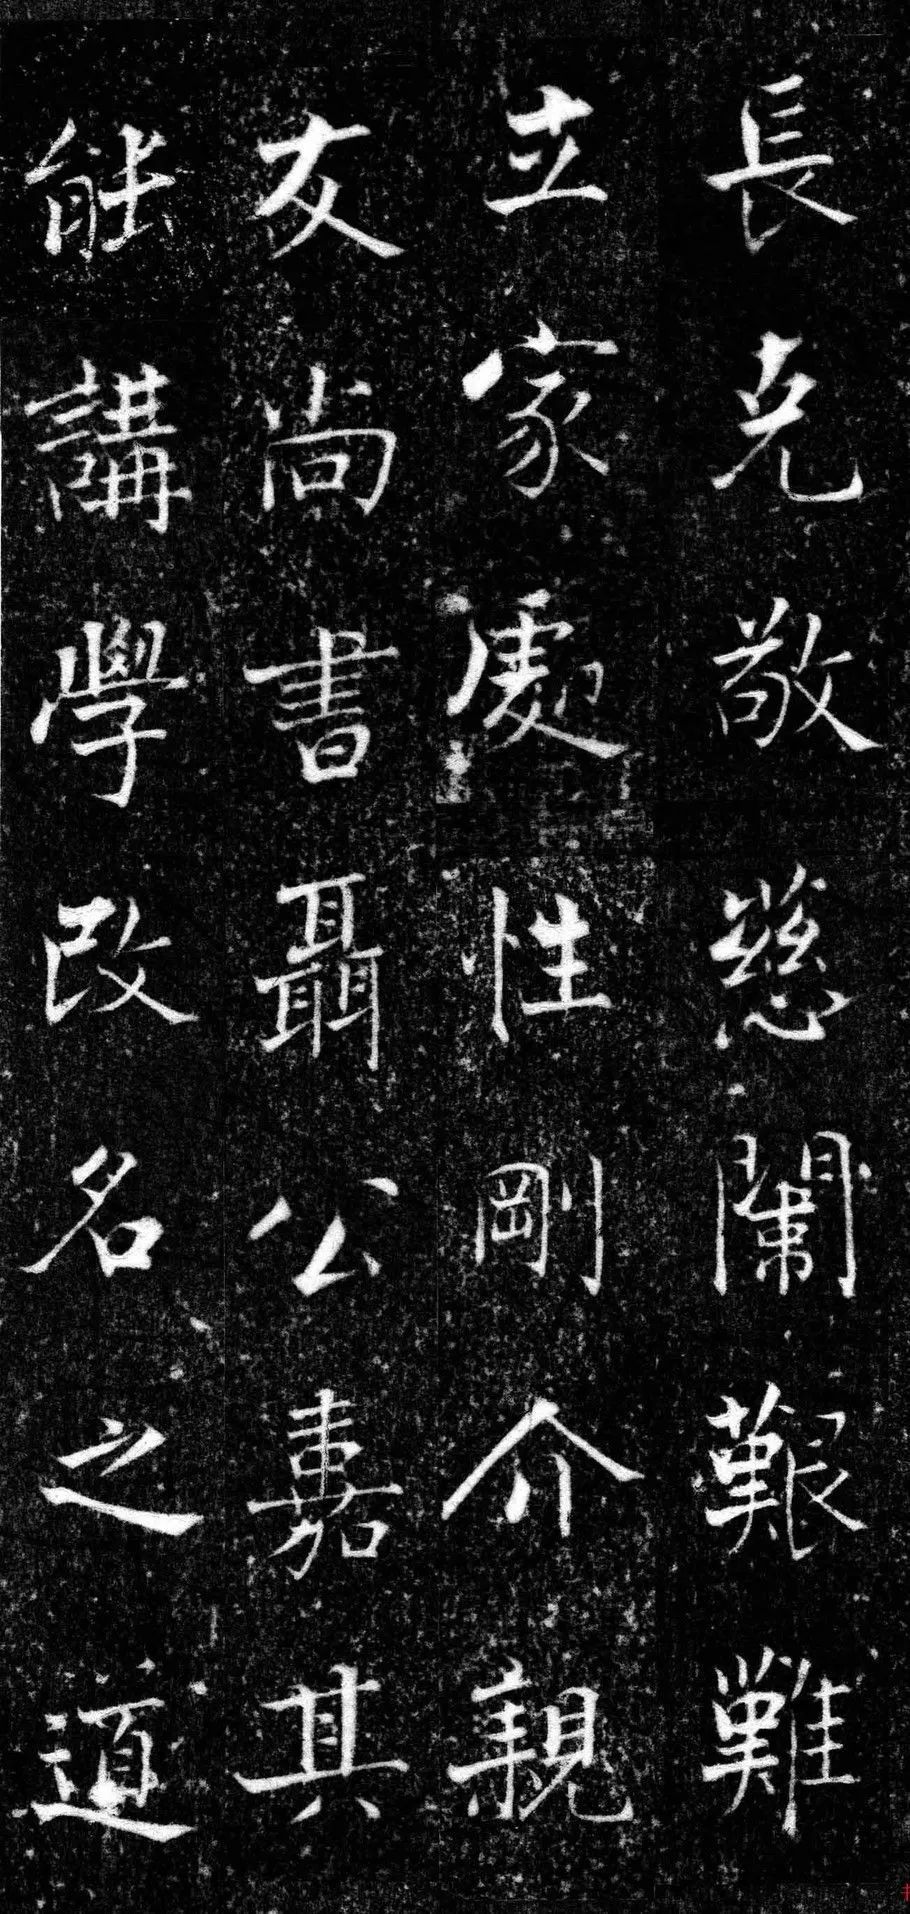 長克敬慈闈艱難
立家處性剛介親
友尚書聶公嘉其
能講學改名之道